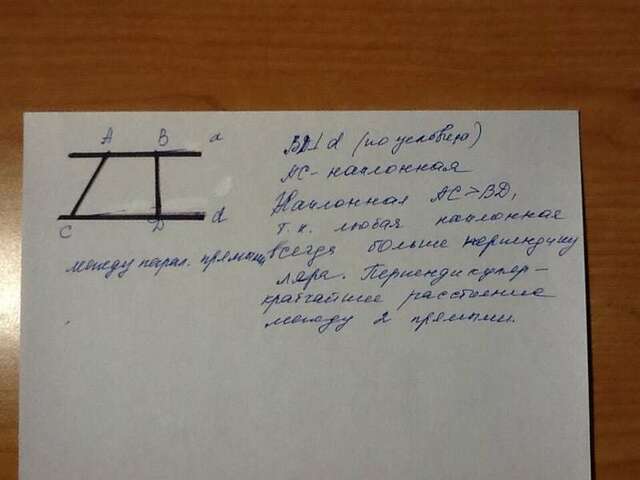 A B a
C D d
между парал. прямыми
BD⊥d (по условию)
AC - наклонная
Наклонная AC > BD,
т.к. любая наклонная
всегда больше перпендику
ляра. Перпендикуляр -
кратчайшее расстояние
между 2 прямыми.